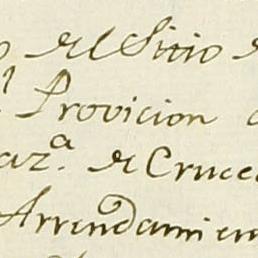 o del Sitio d
l Provicion d
azª. de Cruce
Arrendamien